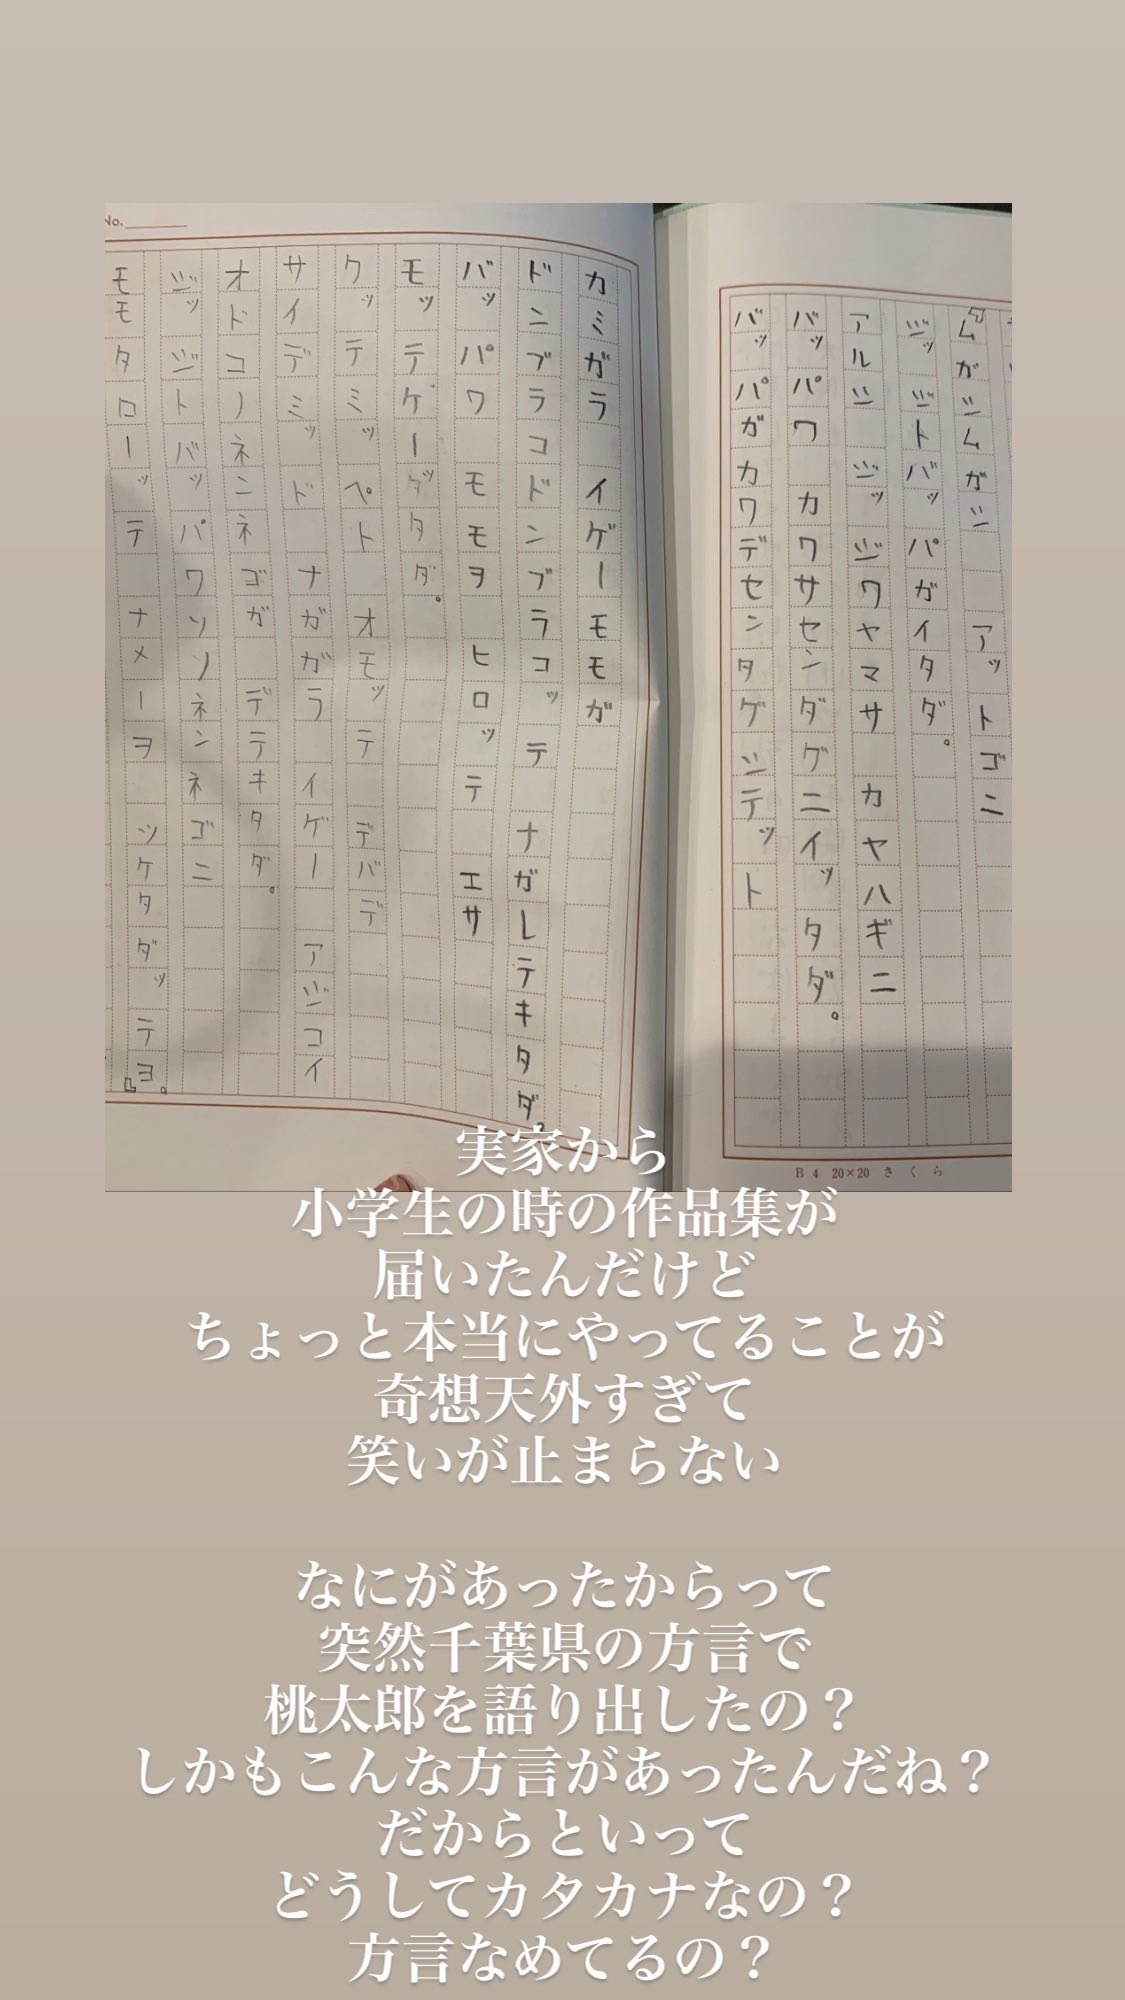 ムガジムガジ　アットゴニ
ジッジトバッパガイタダ。
アルジ　ジッジワヤマサ　カヤハギニ
バッパワ　カワサセンダグニイッタダ。
バッパガカワデセンタゲジテット
B4 20×20 さくら
No.
カミガラ　イゲーモモガ
ドンブラコドンブラコッテ　ナガレテキタダ。
バッパワ　モモヲ　ヒロッテ　エサ
モッテケーッタダ。
クッテミッペト　オモッテ　デバデ
サイデミッド　ナガガラ　イゲー　アジコイ
オドコノネンネゴガ　デテキタダ。
ジッジトバッパワソソネンネゴニ
モモタローッテ　ナメーヲ　ツケタダッテヨ。』
実家から
小学生の時の作品集が
届いたんだけど
ちょっと本当にやってることが
奇想天外すぎて
笑いが止まらない
なにがあったからって
突然千葉県の方言で
桃太郎を語り出したの？
しかもこんな方言があったんだね？
だからといって
どうしてカタカナなの？
方言なめてるの？